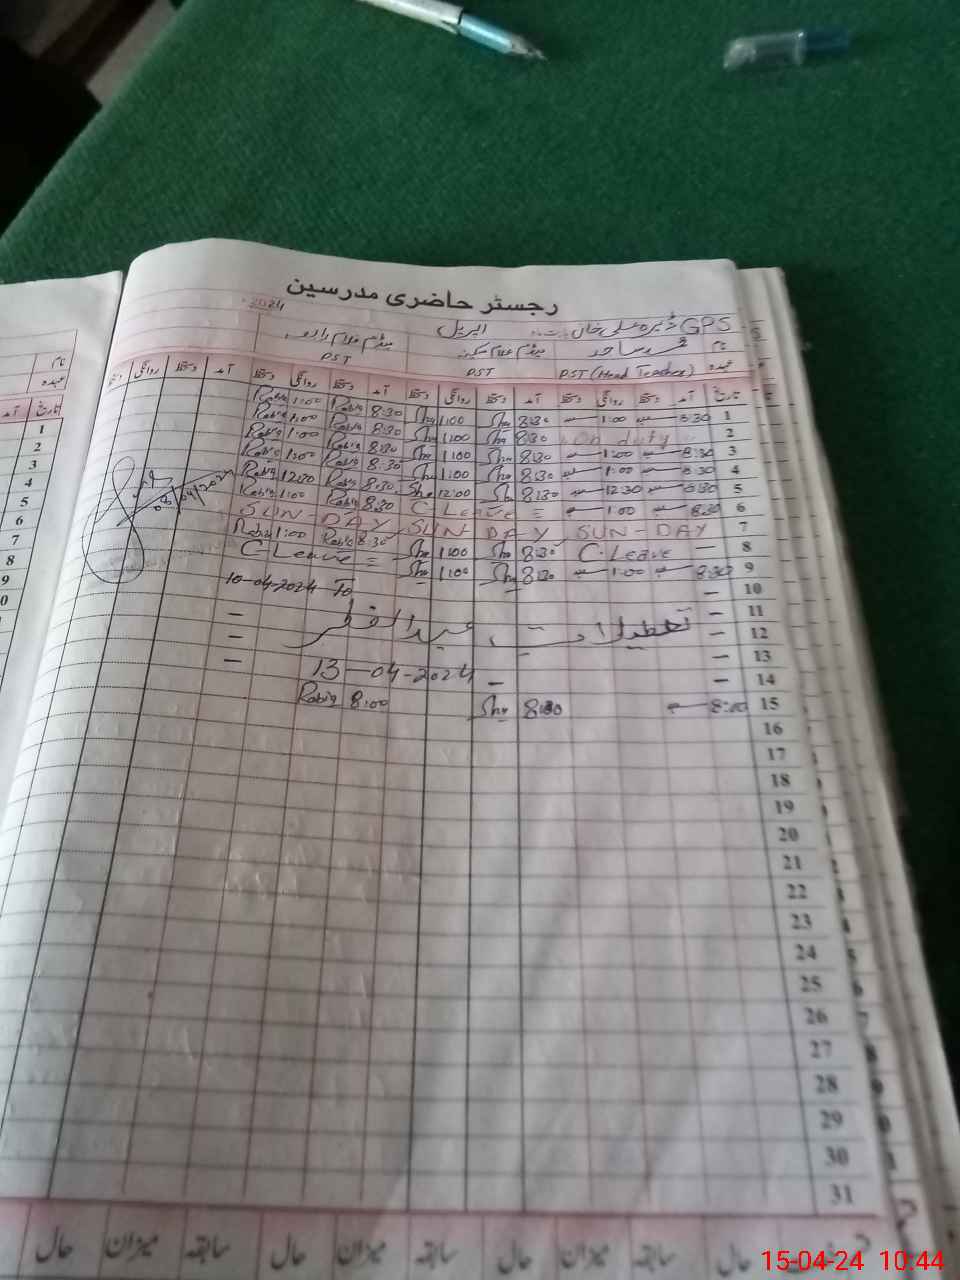 رجسٹر حاضری مدرسین
GPS ڈیرہ علی خان بابت ماہ اپریل 2024
نام
عہدہ PST (Head Teacher) PST PST
تاریخ آمد دستخط روانگی دستخط آمد دستخط روانگی دستخط آمد دستخط روانگی دستخط آمد دستخط روانگی
1 8:30 1:00 Sha 8:30 Sha 1:00 Rabia 8:30 Rabia 1:00
2 On duty Sha 8:30 Sha 1:00 Rabia 8:30 Rabia 1:00
3 8:30 1:00 Sha 8:30 Sha 1:00 Rabia 8:30 Rabia 1:00
4 8:30 1:00 Sha 8:30 Sha 1:00 Rabia 8:30 Rabia 1:00
5 8:30 12:30 Sha 8:30 Sha 12:00 Rabia 8:30 Rabia 12:00
6 8:30 1:00 C-Leave Rabia 8:30 Rabia 1:00
7 SUN-DAY SUN-DAY SUN-DAY
8 C-Leave Sha 8:30 Sha 1:00 Rabia 8:30 Rabia 1:00
9 8:30 1:00 Sha 8:30 Sha 1:00 C-Leave
10 10-04-2024 To
11
12 تعطیلات عید الفطر
13
14 13-04-2024
15 8:00 Sha 8:00 Rabia 8:00
16
17
18
19
20
21
22
23
24
25
26
27
28
29
30
31
08/04/2024
حال میزان سابقہ حال میزان سابقہ حال میزان سابقہ حال
نام
عہدہ
تاریخ آمد
1
2
3
4
5
6
7
8
9
15-04-24 10:44